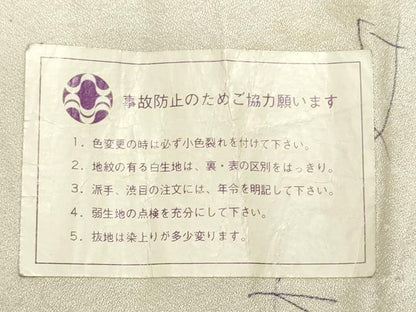 事故防止のためご協力願います
1. 色変更の時は必ず小色裂れを付けて下さい。
2. 地紋の有る白生地は、裏・表の区別をはっきり。
3. 派手、渋目の注文には、年令を明記して下さい。
4. 弱生地の点検を充分にして下さい。
5. 抜地は染上りが多少変ります。